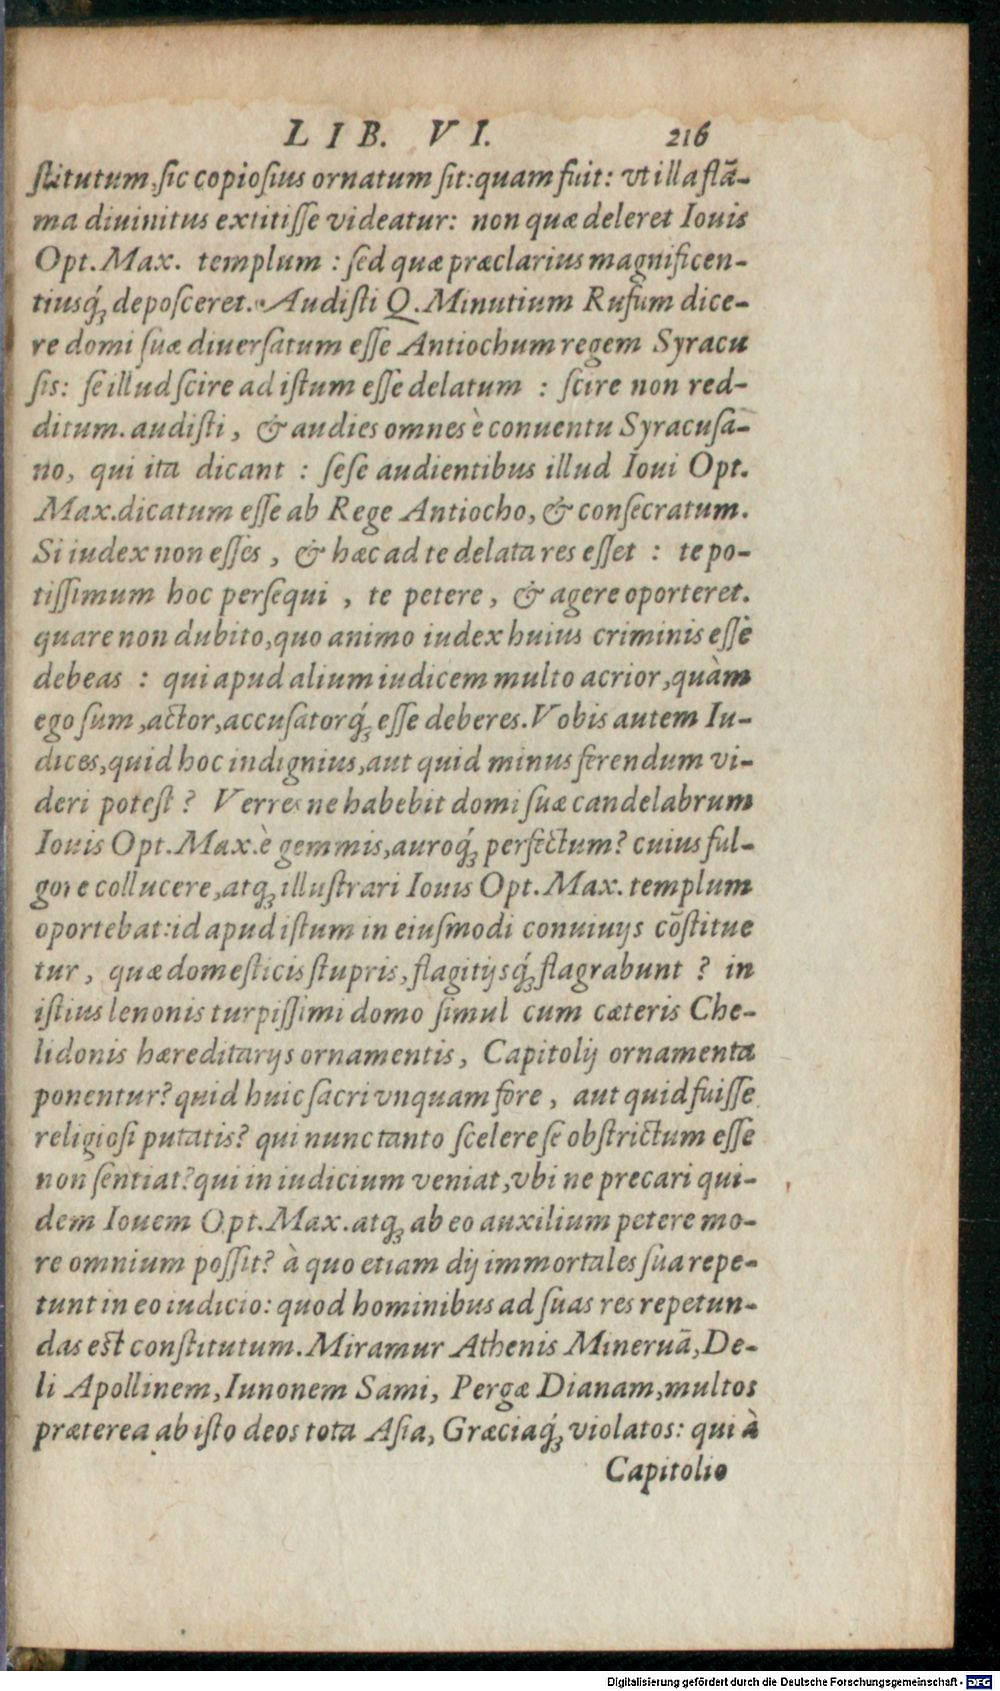 LIB. VI. 216
ſtitutum, ſic copioſius ornatum ſit: quam fuit: vt illa flā-
ma diuinitus extitiſſe videatur: non quæ deleret Iouis
Opt. Max. templum : ſed quæ præclarius magnificen-
tiusq́ꝫ depoſceret. Audiſti Q. Minutium Rufum dice-
re domi ſuæ diuerſatum eſſe Antiochum regem Syracu
ſis: ſe illud ſcire ad iſtum eſſe delatum : ſcire non red-
ditum. audiſti, & audies omnes è conuentu Syracuſa-
no, qui ita dicant : ſeſe audientibus illud Ioui Opt.
Max. dicatum eſſe ab Rege Antiocho, & conſecratum.
Si iudex non eſſes, & hæc ad te delata res eſſet : te po-
tiſſimum hoc perſequi , te petere, & agere oporteret.
quare non dubito, quo animo iudex huius criminis eſſe
debeas : qui apud alium iudicem multo acrior, quàm
ego ſum, actor, accuſatorq́ꝫ eſſe deberes. Vobis autem Iu-
dices, quid hoc indignius, aut quid minus ferendum vi-
deri poteſt ? Verres ne habebit domi ſuæ candelabrum
Iouis Opt. Max. è gemmis, auroq́ꝫ perfectum? cuius ful-
gore collucere, atqꝫ illuſtrari Iouis Opt. Max. templum
oportebat: id apud iſtum in eiuſmodi conuiuijs cōſtitue
tur, quæ domeſticis ſtupris, flagitijsq́ꝫ flagrabunt ? in
iſtius lenonis turpiſſimi domo ſimul cum cæteris Che-
lidonis hæreditarijs ornamentis, Capitolij ornamenta
ponentur? quid huic ſacri vnquam fore, aut quid fuiſſe
religioſi putatis? qui nunc tanto ſcelere ſe obſtrictum eſſe
non ſentiat? qui in iudicium veniat, vbi ne precari qui-
dem Iouem Opt. Max. atqꝫ ab eo auxilium petere mo-
re omnium poſſit? à quo etiam dij immortales ſua repe-
tunt in eo iudicio: quod hominibus ad ſuas res repetun-
das eſt conſtitutum. Miramur Athenis Mineruā, De-
li Apollinem, Iunonem Sami, Pergæ Dianam, multos
præterea ab iſto deos tota Aſia, Græciaq́ꝫ violatos: qui à
Capitolio
Digitalisierung gefördert durch die Deutsche Forschungsgemeinschaft - DFG